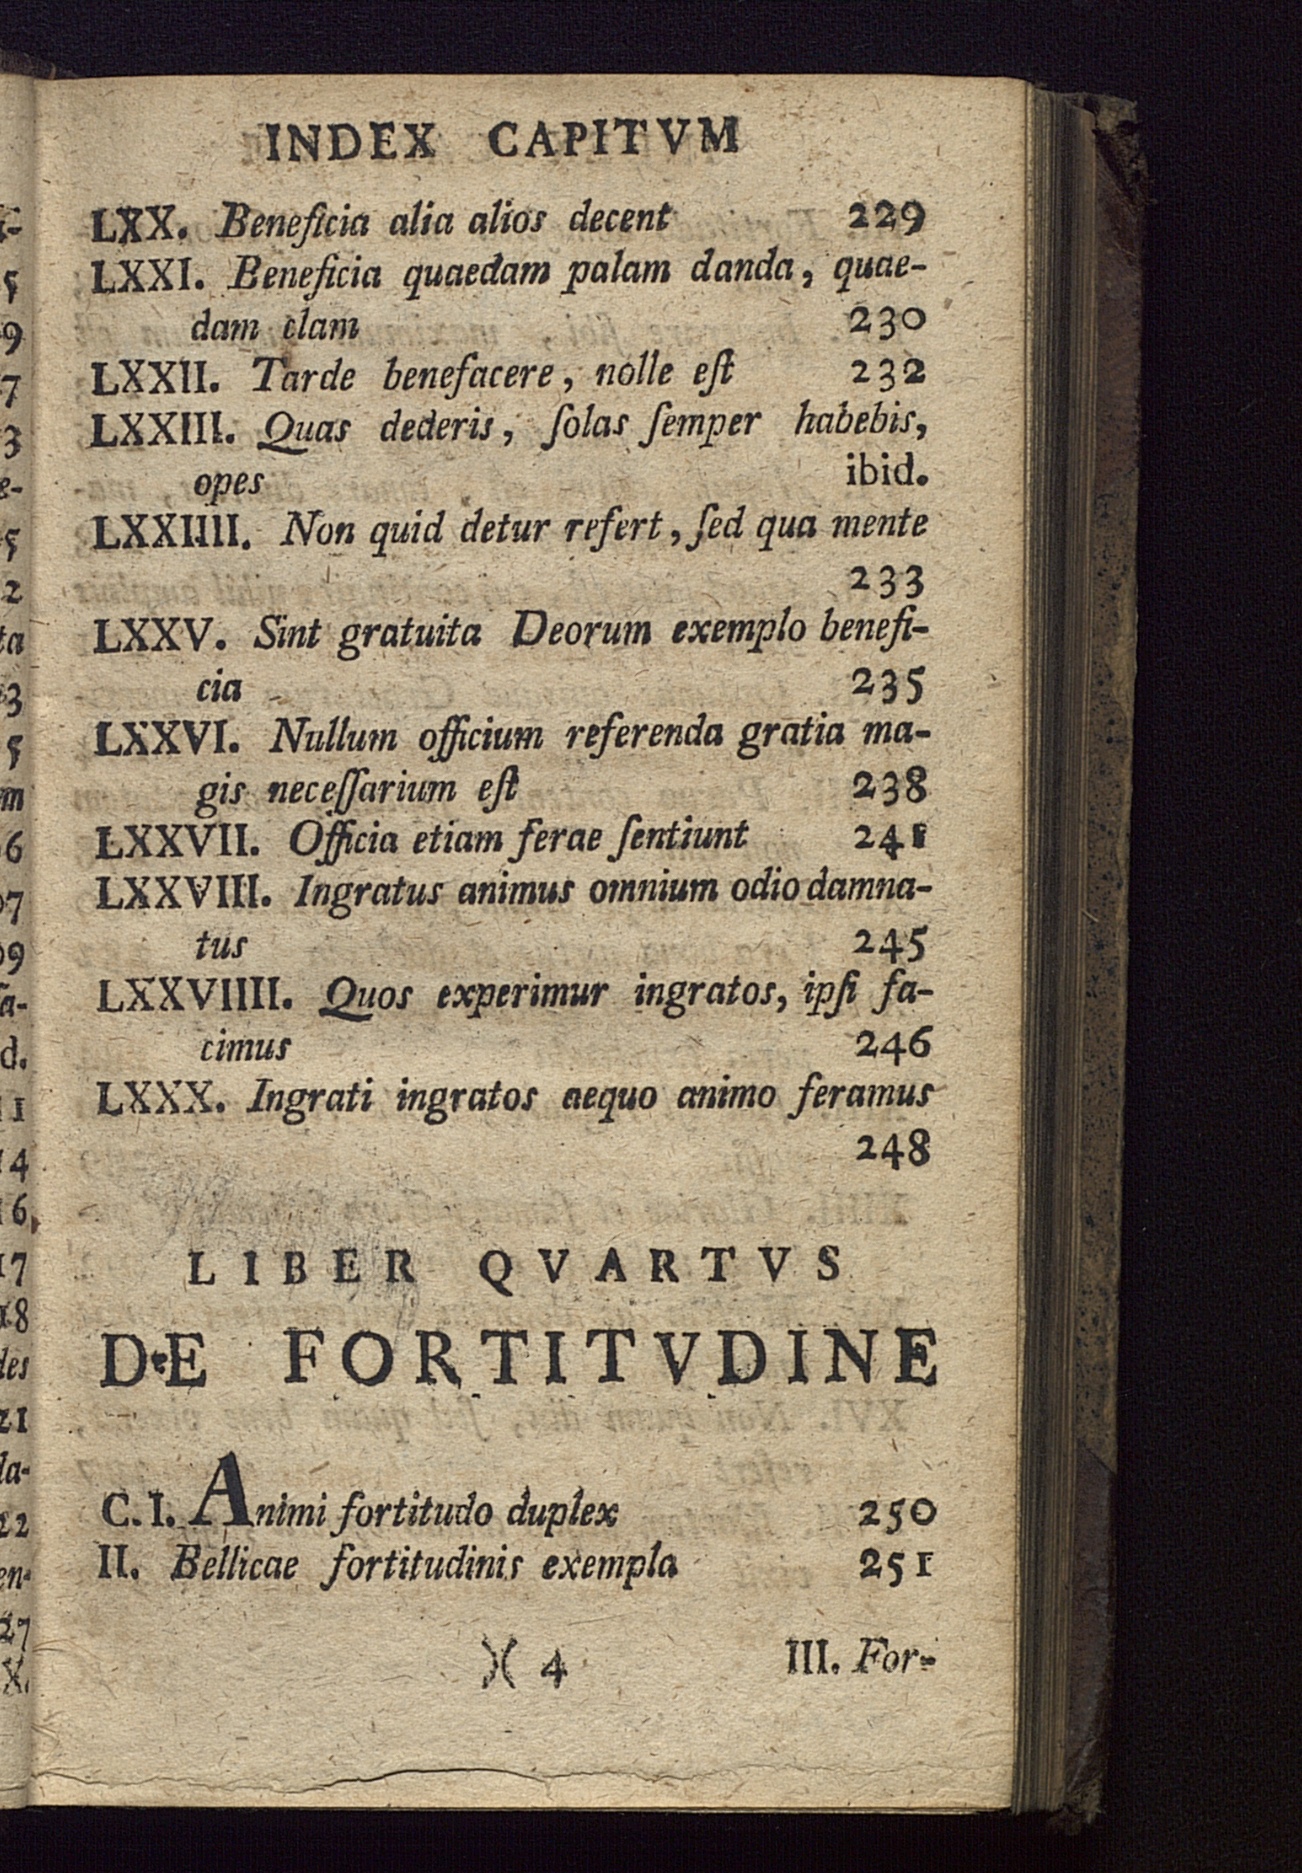 INDEX CAPITVM
LXX. Beneficia alia alios decent 229
LXXI. Beneficia quaedam palam danda, quae-
dam clam 230
LXXII. Tarde benefacere, nolle eſt 232
LXXIII. Quas dederis, ſolas ſemper habebis,
opes ibid.
LXXIIII. Non quid detur refert, ſed qua mente
233
LXXV. Sint gratuita Deorum exemplo benefi-
cia 235
LXXVI. Nullum officium referenda gratia ma-
gis neceſſarium eſt 238
LXXVII. Officia etiam ferae ſentiunt 241
LXXVIII. Ingratus animus omnium odio damna-
tus 245
LXXVIIII. Quos experimur ingratos, ipſi fa-
cimus 246
LXXX. Ingrati ingratos aequo animo feramus
248
LIBER QVARTVS
DE FORTITVDINE
C. I. Animi fortitudo duplex 250
II. Bellicae fortitudinis exempla 251
)( 4 III. For-